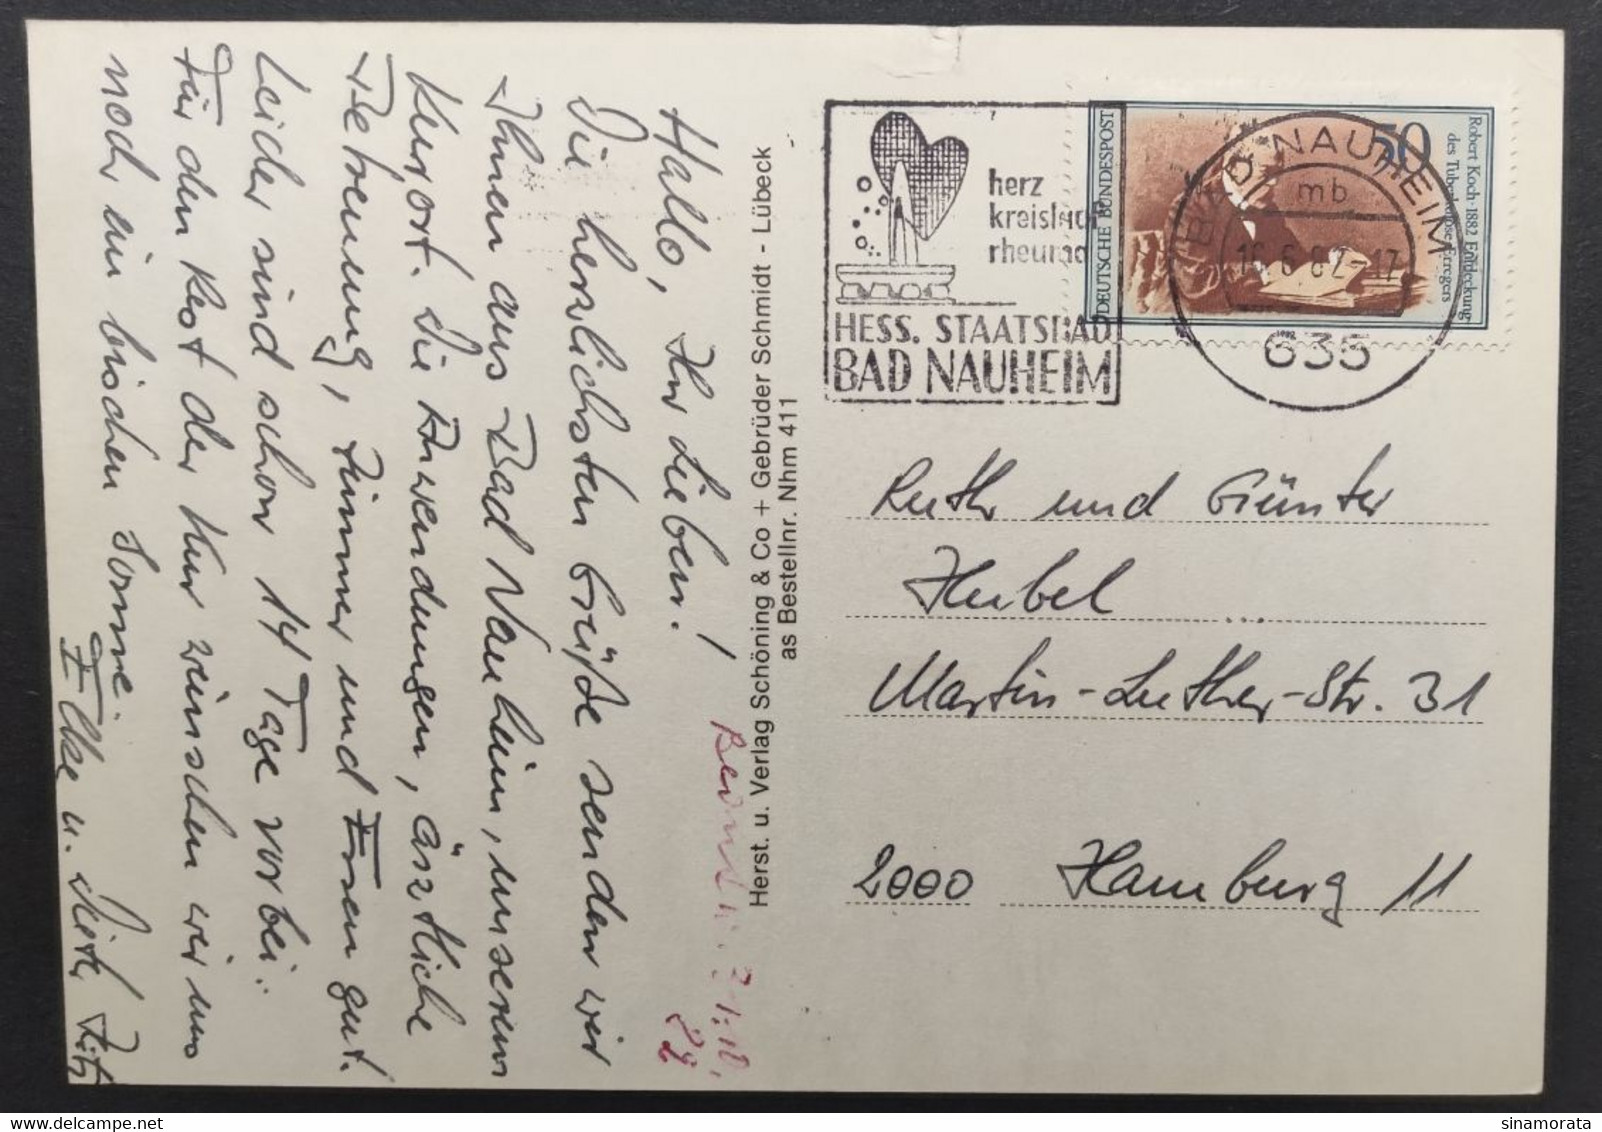 Hallo, Ihr Lieben!
Die herzlichsten Grüße senden wir
Ihnen aus Bad Nauheim, unserem
Kurort. Die Anwendungen, ärztliche
Betreuung, Zimmer und Essen gut.
Leider sind schon 14 Tage vorbei.
Für den Rest der Kur wünschen wir uns
noch ein bischen Sonne.
Elke u. Dieter
Herst. u. Verlag Schöning & Co + Gebrüder Schmidt - Lübeck
as Bestellnr. Nhm 411
herz
kreislauf
rheuma
HESS. STAATSBAD
BAD NAUHEIM
DEUTSCHE BUNDESPOST
50
Robert Koch · 1882 Entdeckung
des Tuberkulose-Erregers
BAD NAUHEIM
mb
16.6.82-17
635
Ruth und Günter
Hubel
Martin-Luther-Str. 31
2000 Hamburg 11
sinamorata